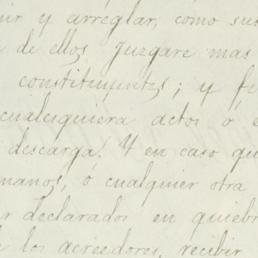 y arreglar, como sus
de ellos juzgare mas
constituyentes; y fe
cualesquiera actos ó
descarga. Y en caso qu
manos, ó cualquier otra
declarados en quieb
los acreedores, recibir